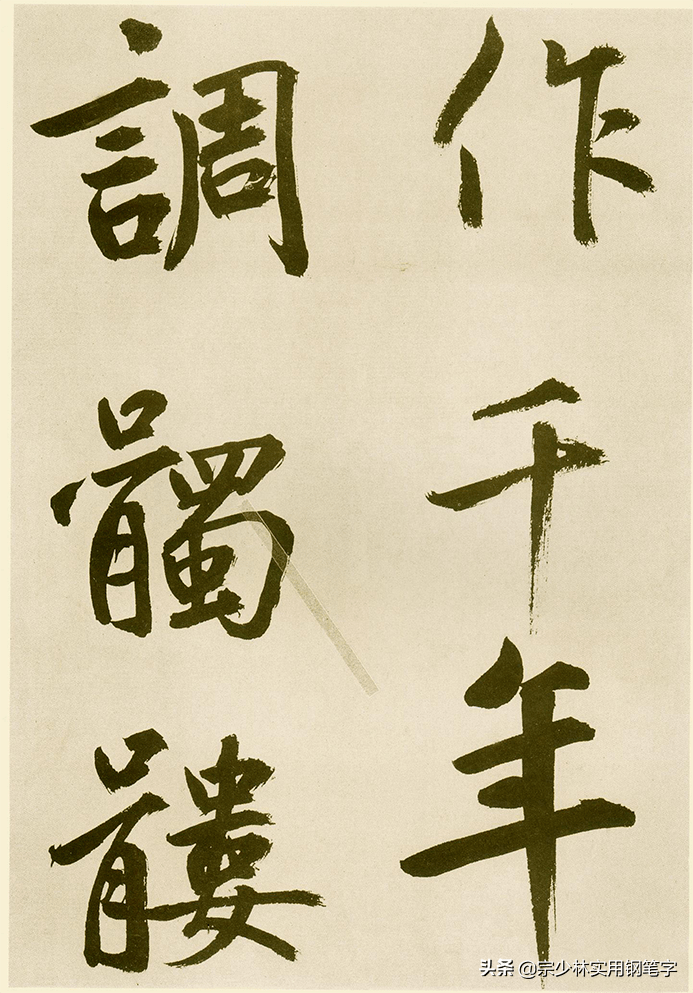 作千年
調髑髏
头条 @宗少林实用钢笔字